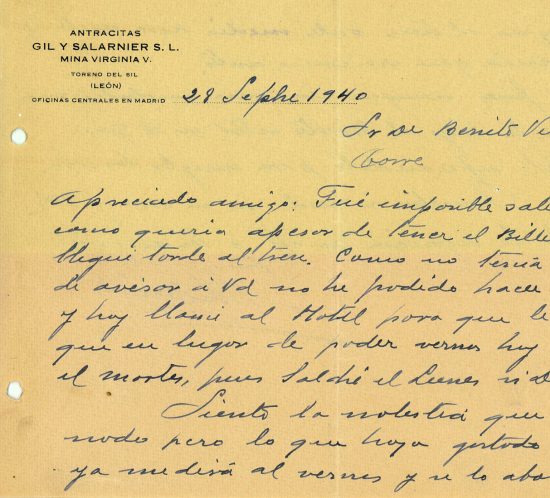 ANTRACITAS
GIL Y SALARNIER S. L.
MINA VIRGINIA V.
TORENO DEL SIL
(LEÓN)
OFICINAS CENTRALES EN MADRID
28 Sepbre 1940
Sr De Benito Ve
Torre
Apreciado amigo: Fué imposible sali
como queria apesor de tener el Bille
llegui torde al tren. Como no tenia
de avisor á Vd no he podido hacer
y hoy llamé al Hotel para que le
que en lugor de poder vernos hoy
el martes, pues Saldré el Lunes si D
Siento la molestia que
modo pero lo que haya gastado
ya me dirá al vernos y se lo abo